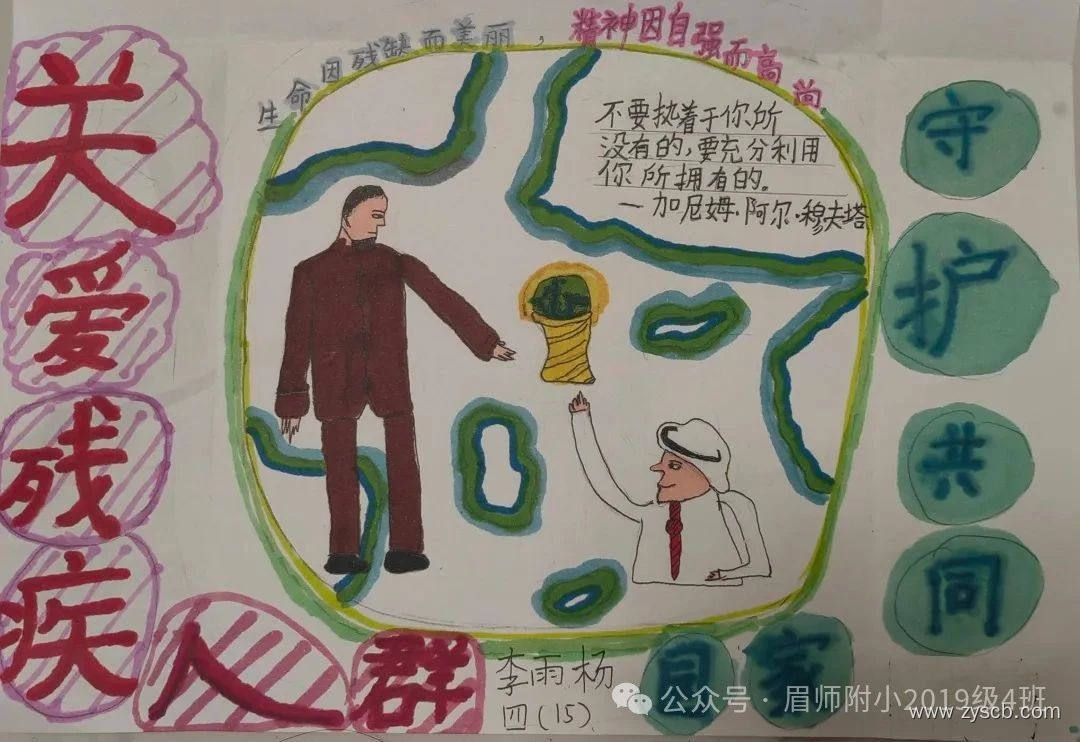 生命因残缺而美丽，精神因自强而高尚
关爱残疾人群
不要执着于你所
没有的，要充分利用
你所拥有的。
—加尼姆·阿尔·穆夫塔
守护共同
家
李雨杨
四(15)
公众号·眉师附小2019级4班
www.zyscb.com